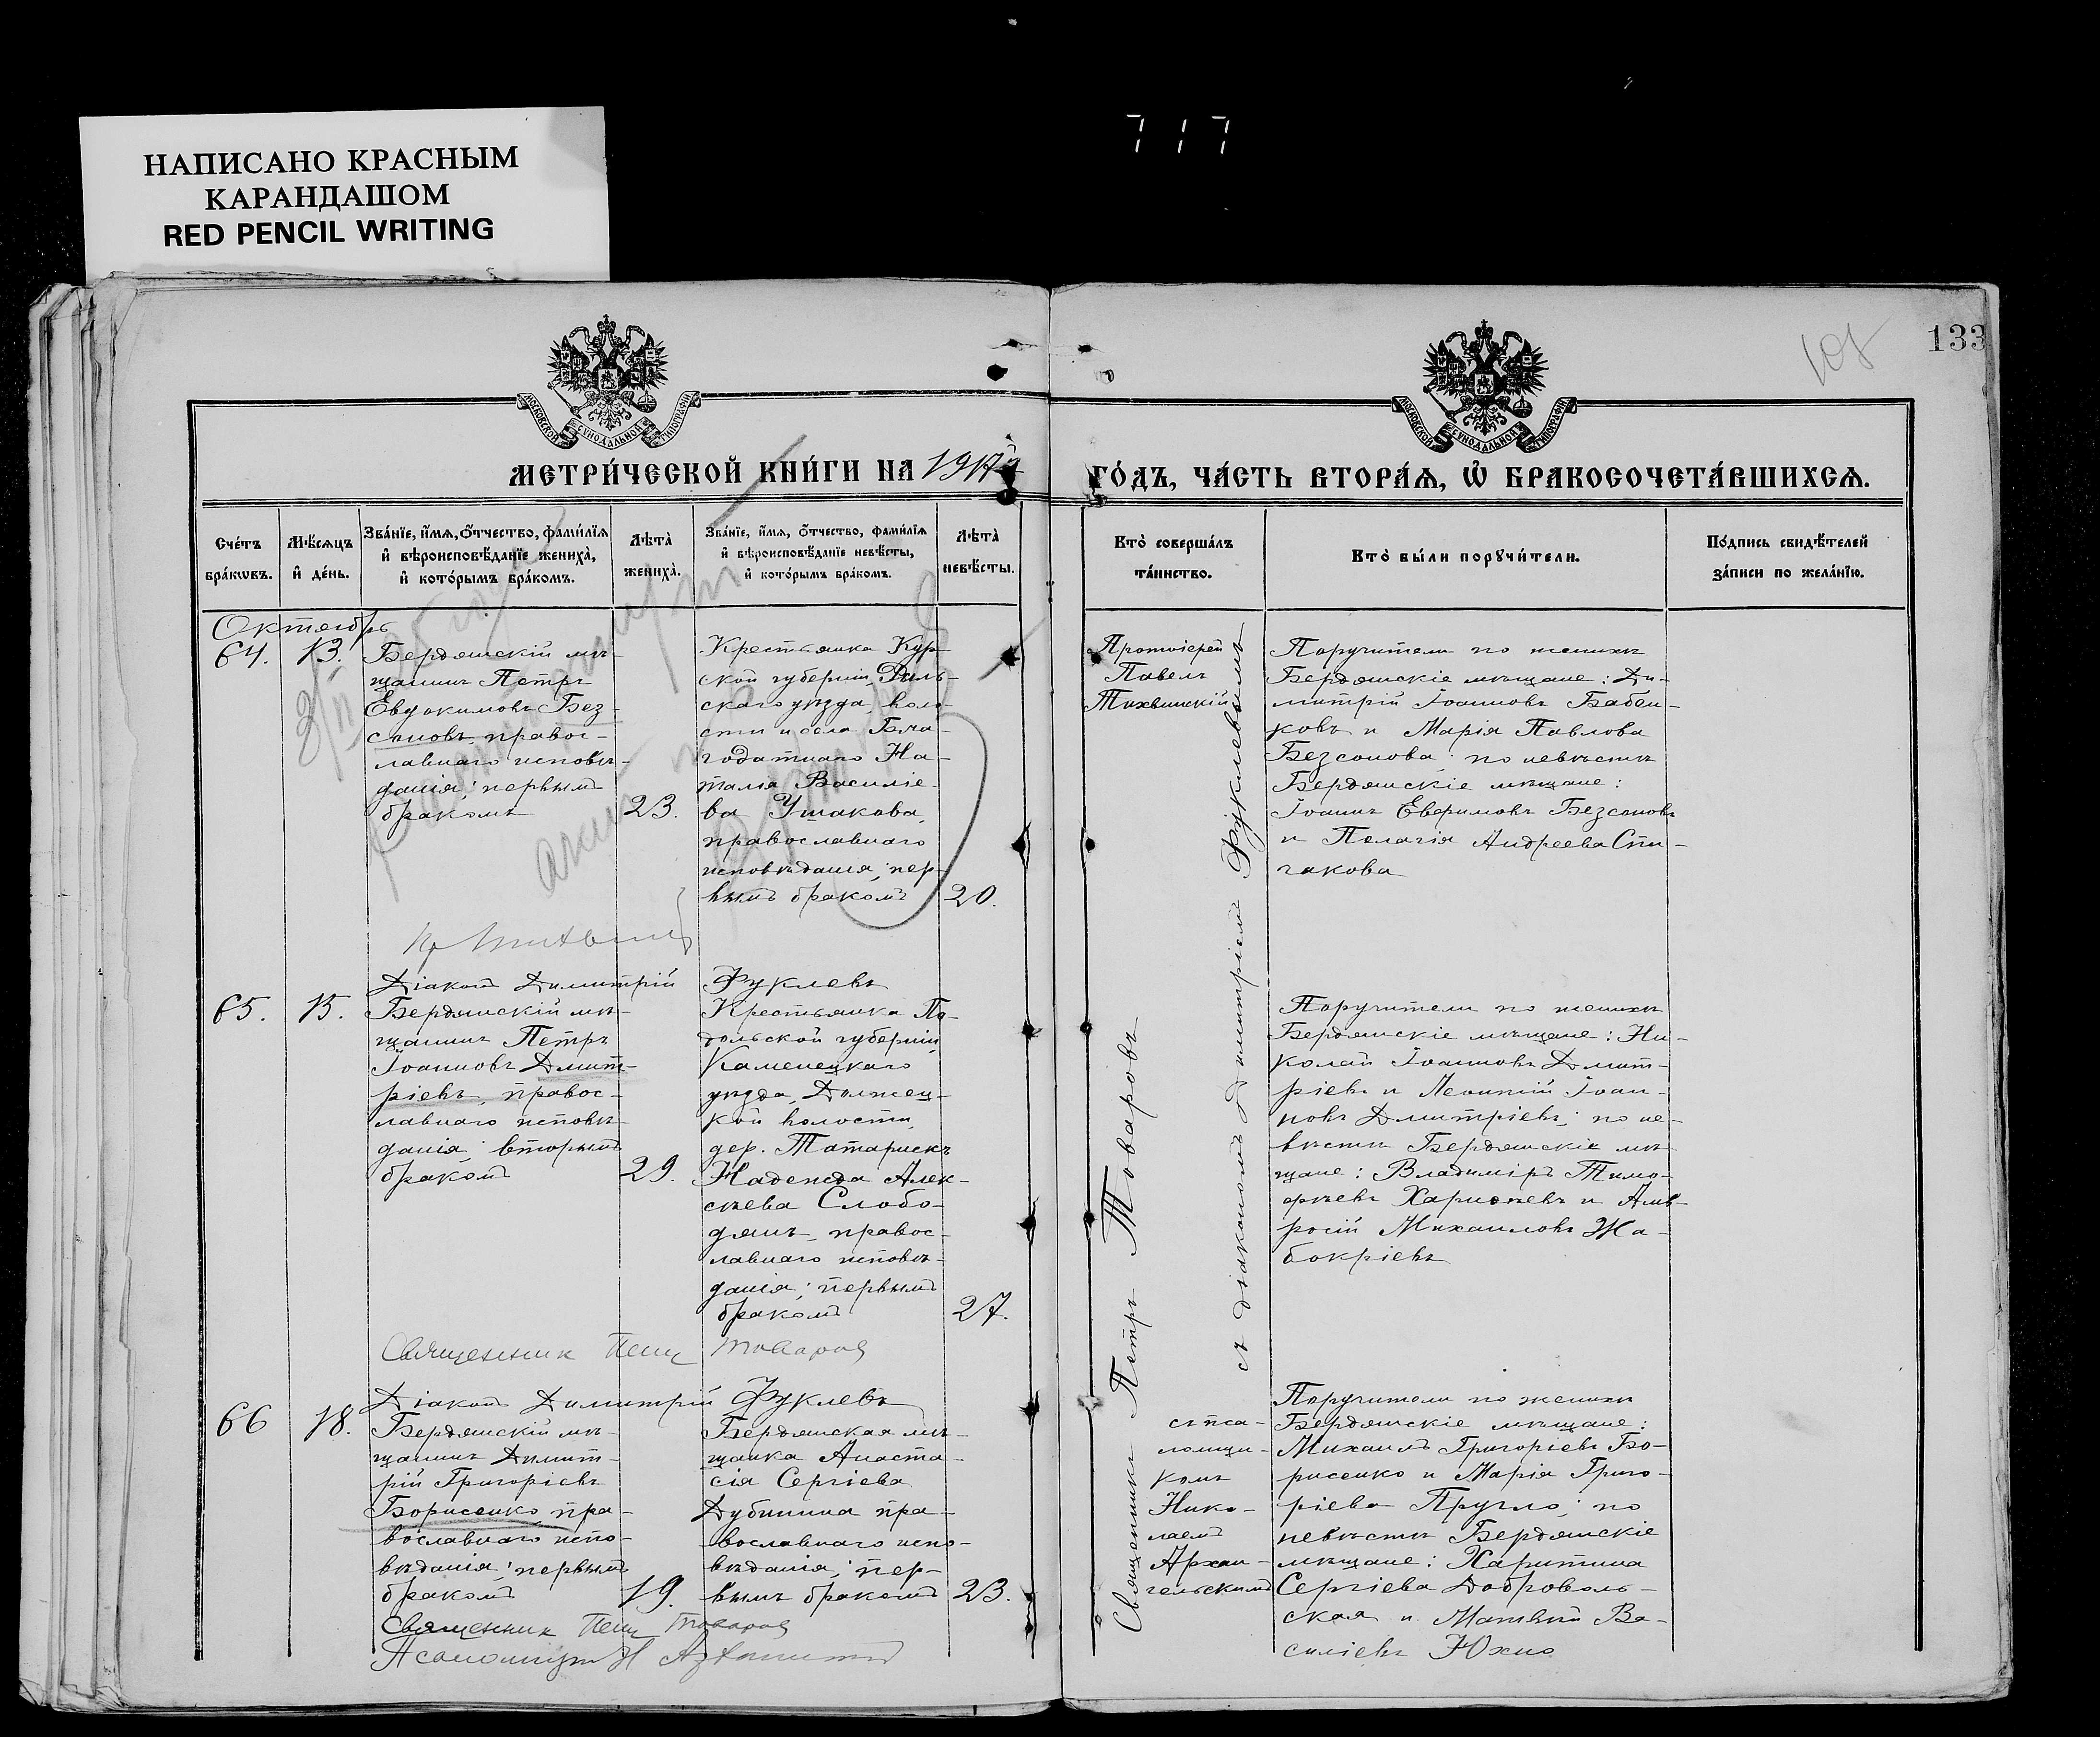 717
НАПИСАНО КРАСНЫМ
КАРАНДАШОМ
RED PENCIL WRITING
133
МЕТРИ́ЧЕСКОЙ КНИ́ГИ НА 191
ГО́ДЪ, ЧА́СТЬ ВТОРА́Ѧ, Ѡ҆ БРАКОСОЧЕТА́ВШИХСѦ.
Сче́тъ
бра́кѡвъ.
Мѣ́сѧцъ
и҆ де́нь.
Зва́нїе, и҆́мѧ, ѻ҆́тчество, фами́лїѧ
и҆ вѣроисповѣ́данїе жениха̀,
и҆ кото́рымъ бра́комъ.
Лѣта̀
жениха̀.
Зва́нїе, и҆́мѧ, ѻ҆́тчество, фами́лїѧ
и҆ вѣроисповѣ́данїе невѣ́сты,
и҆ кото́рымъ бра́комъ.
Лѣта̀
невѣ́сты.
Кто̀ соверша́лъ
та́инство.
Кто̀ бы́ли порꙋчи́тели.
По́дпись свидѣ́телей
за́писи по жела́нїю.
Октябрь
64.
13.
Бердянскій мѣ-
щанинъ Петръ
Евдокимовъ Без-
соновъ, правос-
лавнаго исповѣ-
данія; первымъ
бракомъ
23.
Крестьянка Кур-
ской губерніи, Рыль-
скаго уѣзда, воло-
сти и села Бла-
годатнаго На-
талія Василіе-
ва Ушакова,
православнаго
исповѣданія; пер-
вымъ бракомъ
20.
Протоіерей
Павелъ
Тихвинскій
съ діакономъ Димитріемъ Фуклевымъ
Поручители по женихѣ
Бердянскіе мѣщане: Ди-
митрій Іоанновъ Бабен-
ковъ и Марія Павлова
Безсонова; по невѣстѣ
Бердянскіе мѣщане:
Іоаннъ Евфимовъ Безсоновъ
и Пелагія Андреева Спи-
чакова
Діаконъ Димитрій Фуклевъ
65.
15.
Бердянскій мѣ-
щанинъ Петръ
Іоанновъ Дмит-
ріевъ, правос-
лавнаго исповѣ-
данія; вторымъ
бракомъ
29.
Крестьянка По-
дольской губерніи,
Каменецкаго
уѣзда, Должец-
кой волости,
дер. Татарискъ
Надежда Алек-
сѣева Слобо-
дянъ, правос-
лавнаго исповѣ-
данія; первымъ
бракомъ
27.
Священникъ Петръ Товаровъ
Поручители по женихѣ
Бердянскіе мѣщане: Ни-
колай Іоанновъ Дмит-
ріевъ и Леонтій Іоан-
новъ Дмитріевъ; по не-
вѣстѣ Бердянскіе мѣ-
щане: Владиміръ Тимо-
фѣевъ Харижевъ и Амв-
росій Михаиловъ Жа-
бокріевъ
Священникъ Петръ Товаровъ
Діаконъ Димитрій Фуклевъ
66
18.
Бердянскій мѣ-
щанинъ Димит-
рій Григорьевъ
Борисенко, пра-
вославнаго испо-
вѣданія; первымъ
бракомъ
19.
Бердянская мѣ-
щанка Анаста-
сія Сергіева
Дубинина пра-
вославнаго испо-
вѣданія; пер-
вымъ бракомъ
23.
съ пса-
ломщи-
комъ
Нико-
лаемъ
Архан-
гельскимъ
Поручители по женихѣ
Бердянскіе мѣщане:
Михаилъ Григорьевъ Бо-
рисенко и Марія Григо-
ріева Пругло; по
невѣстѣ Бердянскіе
мѣщане: Харитина
Сергіева Доброволь-
ская и Матвѣй Ва-
силіевъ Юхно
Священникъ Петръ Товаровъ
Псаломщикъ Н